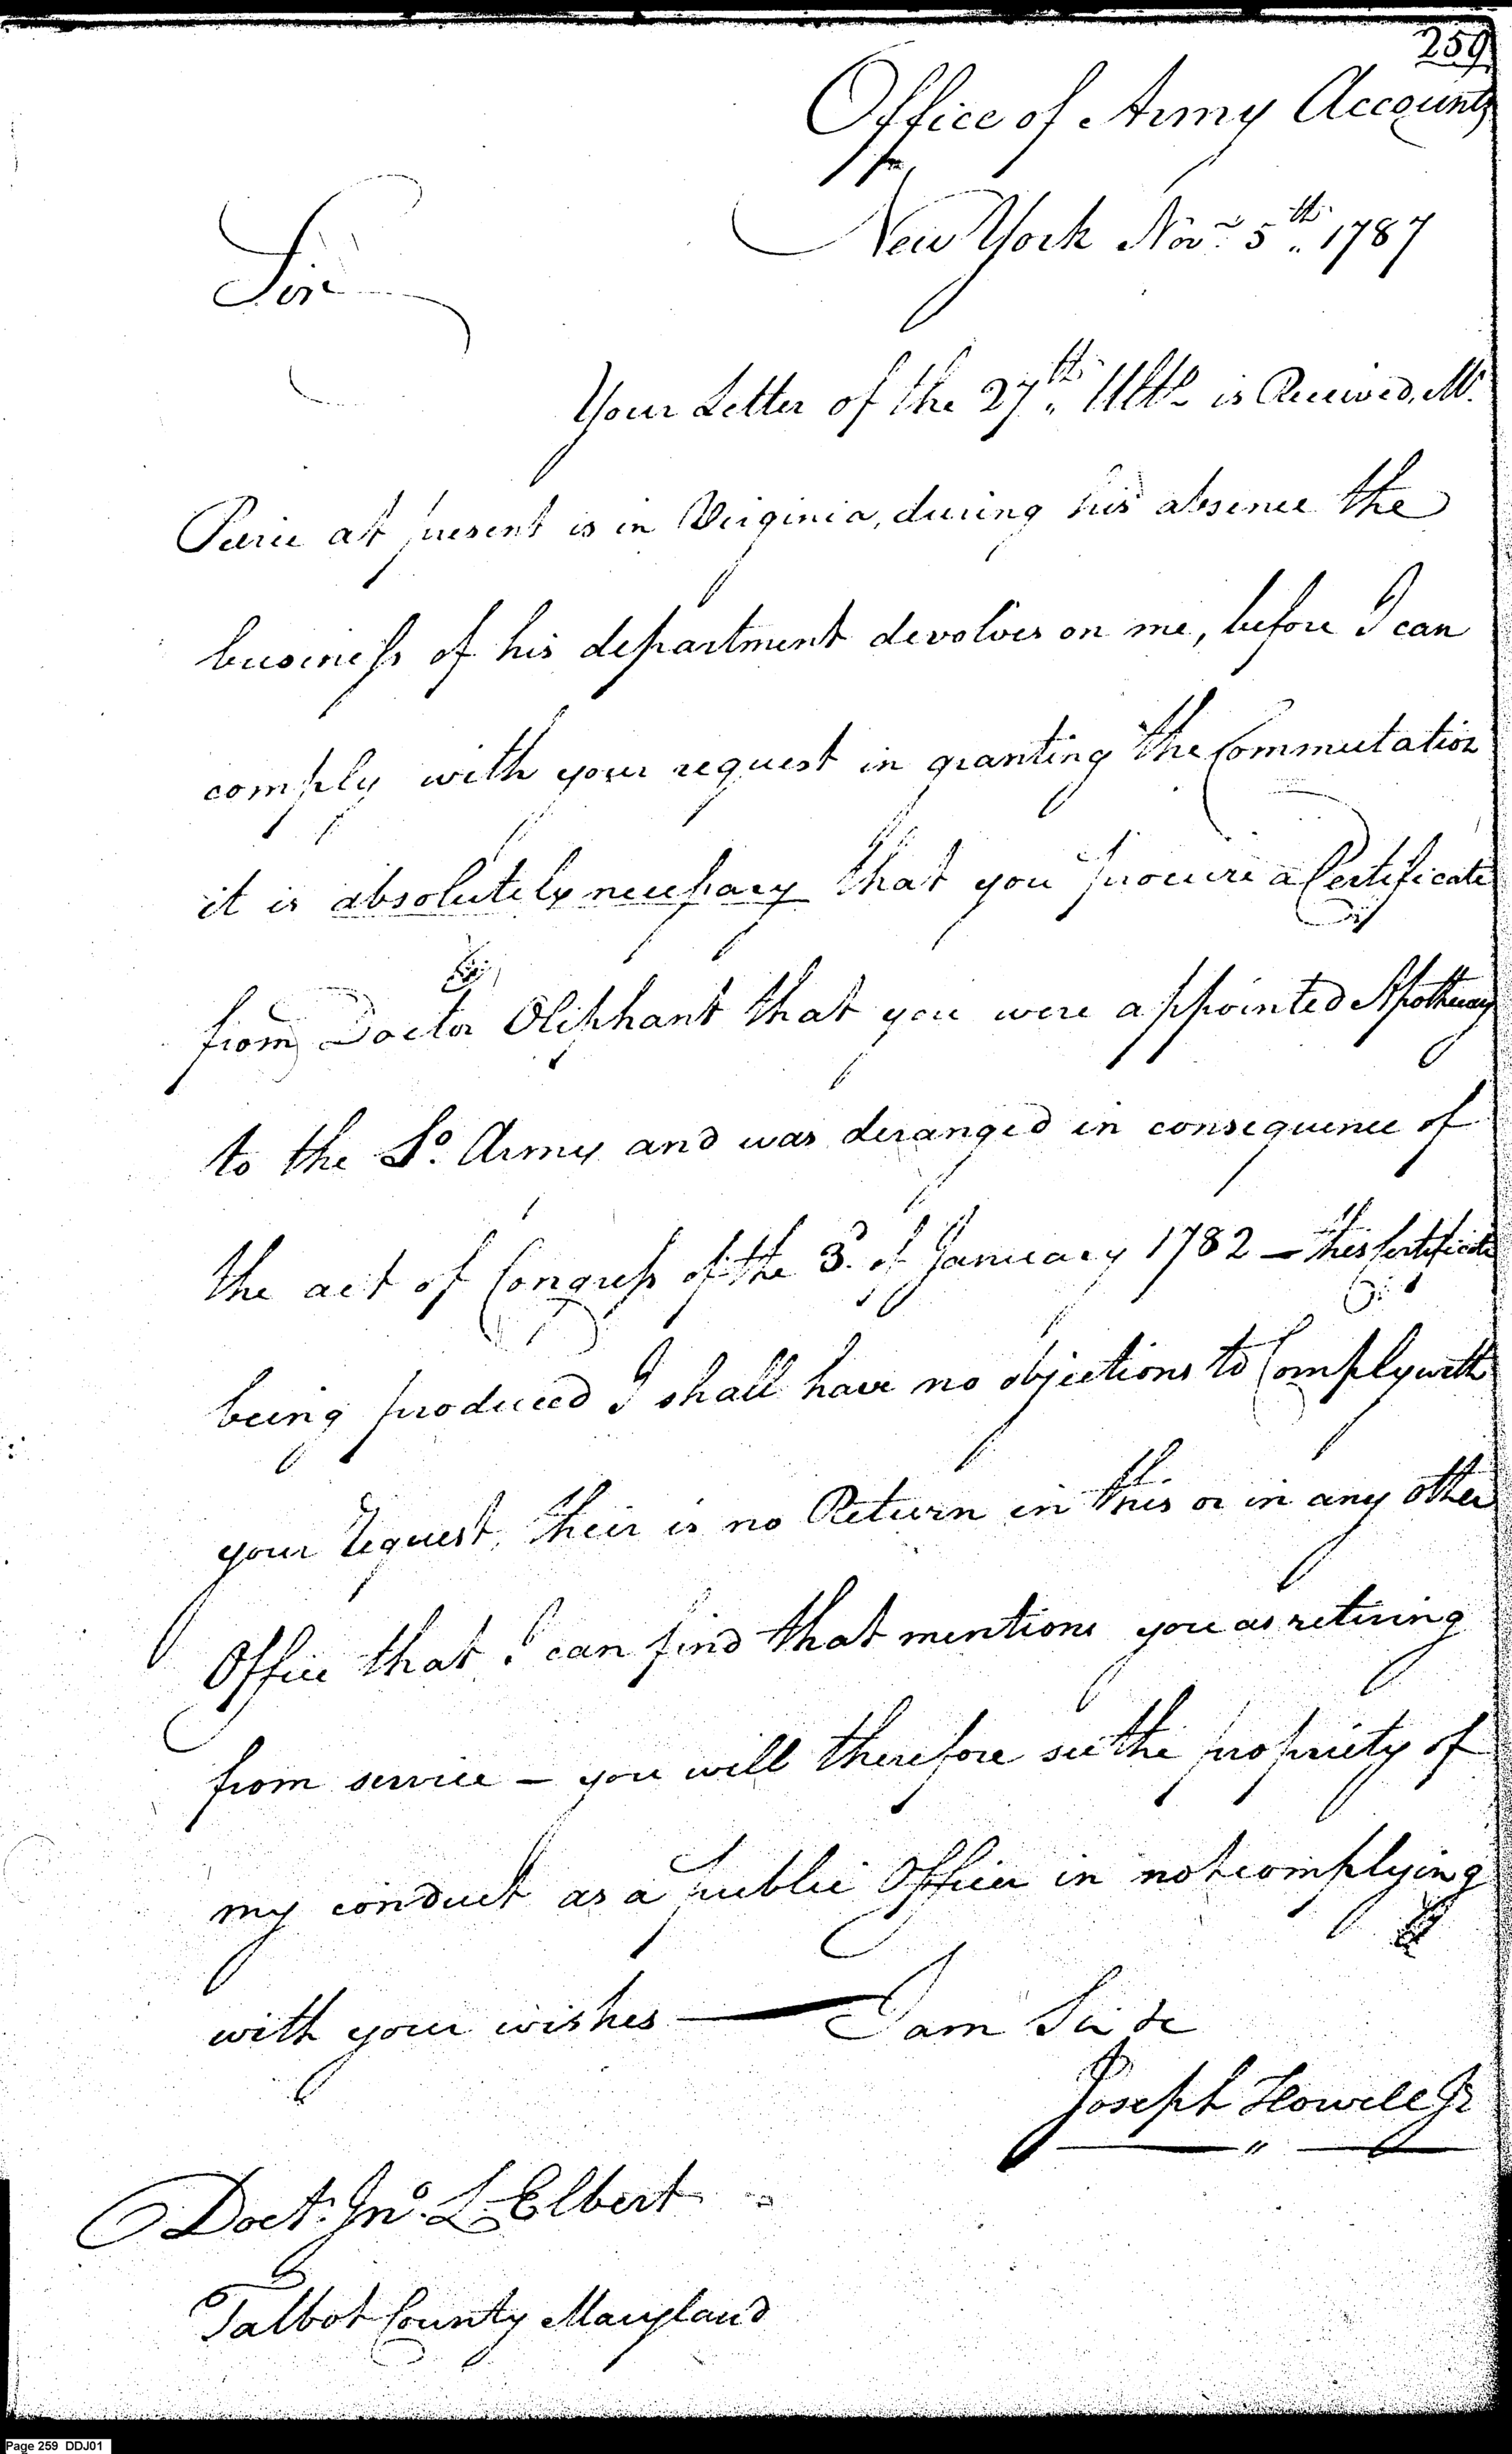 259
Office of Army Accounts
New York Novr. 5th. 1787
Sir
Your Letter of the 27th. Ulto. is Received, Mr.
Pierce at present is in Virginia, during his absence the
business of his department devolves on me, before I can
comply with your request in granting the Commutation
it is absolutely necessary that you procure a Certificate
from Doctor Oliphant that you were appointed Apothecary
to the So. Army and was deranged in consequence of
the act of Congress of the 3d. of January 1782 — this Certificate
being produced I shall have no objections to Comply with
your request, their is no Return in this or in any other
Office that I can find that mentions you as retiring
from service — you will therefore see the propriety of
my conduct as a public Officer in not complying
with your wishes — I am Sir &c
Joseph Howell Jr
Doctr. Jno. L. Elbert
Talbot County Maryland
Page 259 DDJ01